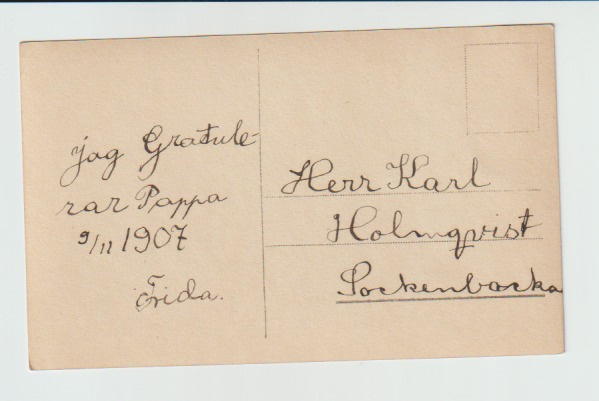 jag Gratule-
rar Pappa
9/11 1907
Frida.
Herr Karl
Holmqvist
Sockenbacka